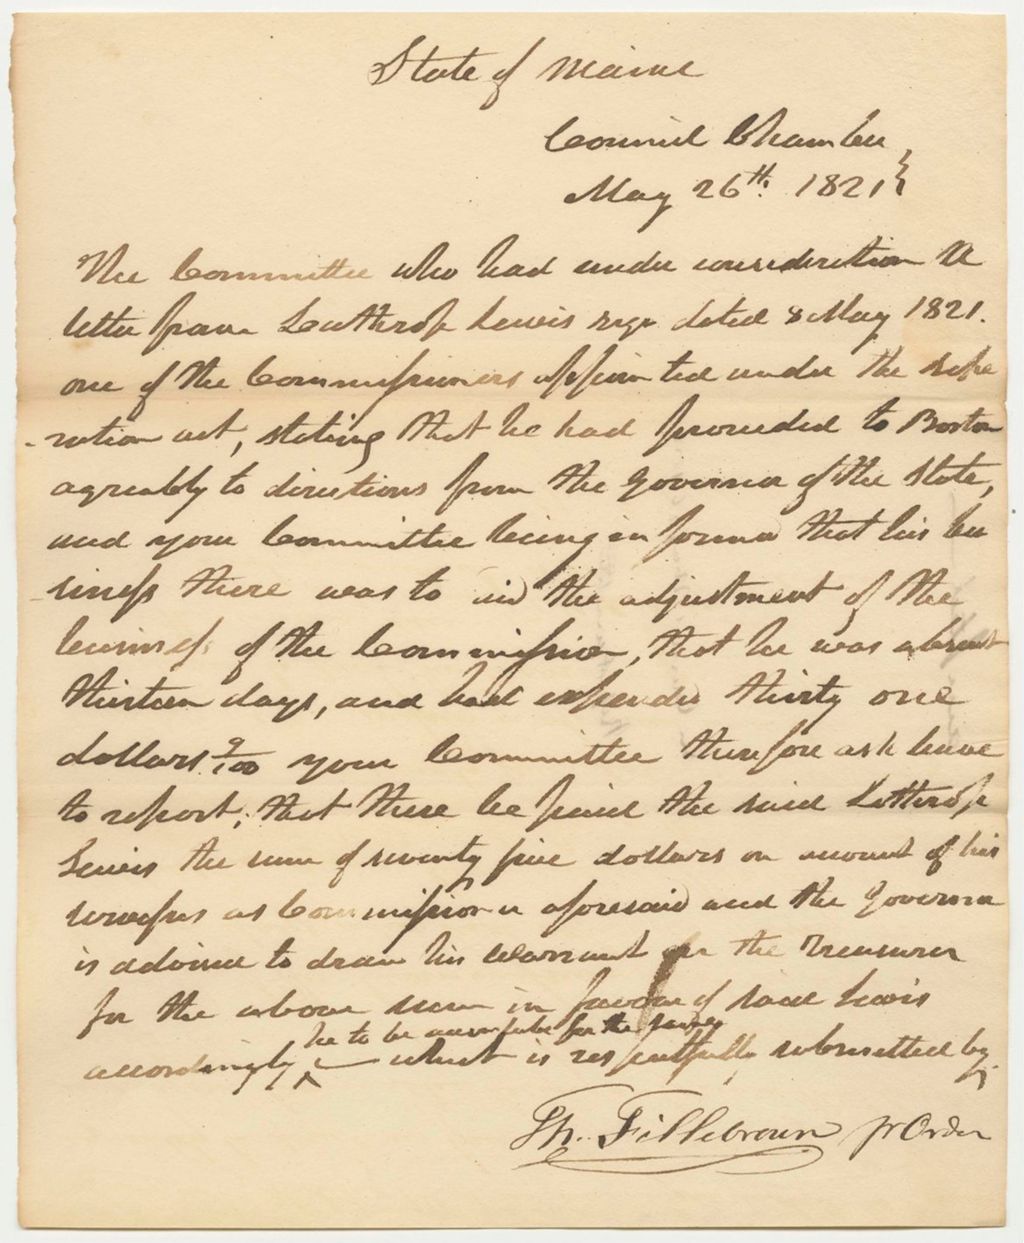 State of Maine
Council Chamber
May 26th. 1821
The Committee who had under consideration the
letter from Lathrop Lewis Esqr dated 8 May 1821.
one of the Commissioners appointed under the sepe
-ration act, stating that he had proceeded to Boston
agreably to directions from the Governor of the State,
and your Committee being informd that his bu
-siness there was to aid the adjustment of the
business of the Commission, that he was absent
thirteen days, and had expended thirty one
dollars 9/100 your Committee therefore ask leave
to report, that there be paid the said Lothrop
Lewis the sum of seventy five dollars on account of his
services as Commissioner aforesaid and the Governor
is advised to draw his Warrant on the Treasurer
for the above sum in favour of said Lewis
he to be accountable for the same
accordingly ^ — which is respectfully submitted by
Th. Fillebrown pr Order